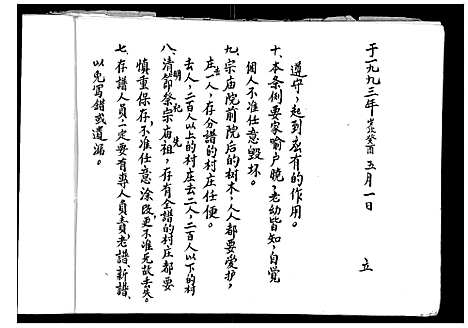 以免写错或遗漏。
七、存谱人员一定要有专人员责,老谱、新谱、
慎重保存,不准任意涂改,更不准无故丢失。
八、清明节祭祀宗庙祖先,存有全谱的村庄都要
去人,二百人以上的村庄去二人,二百人以下的村
庄去一人,存分谱的村庄任便。
九、宗庙院前院后的树木,人人都要爱护,
個人不准任意毁坏。
十、本条例要家喻户晓,老幼皆知,自觉
遵守,起到应有的作用。
于一九九三年岁次癸酉五月一日
立